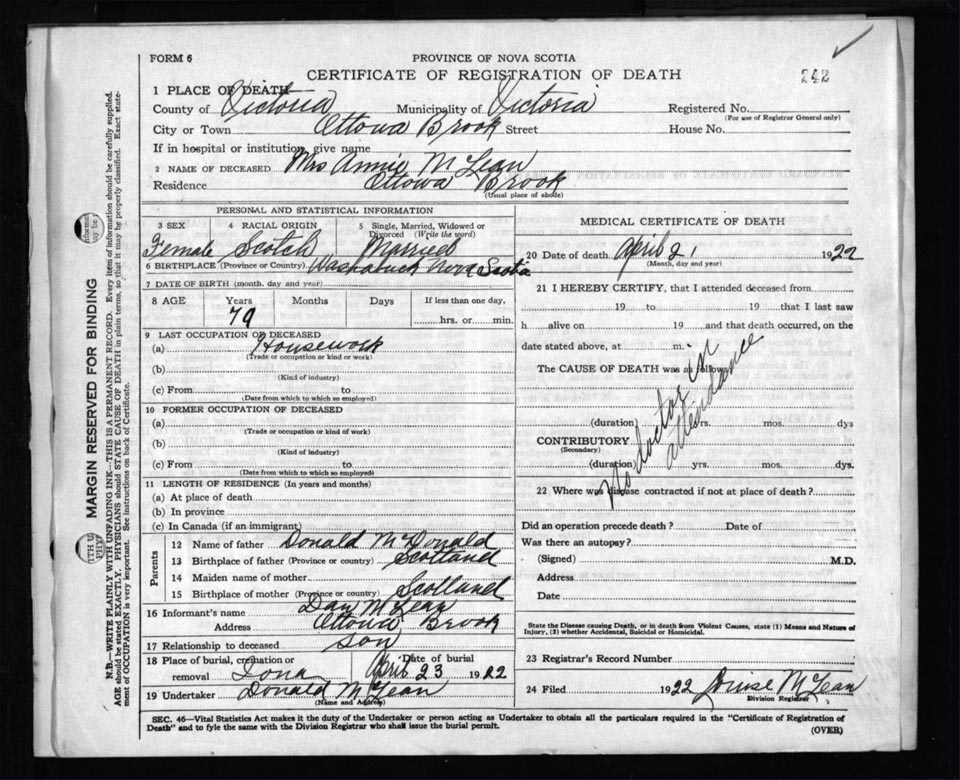 FORM 6
PROVINCE OF NOVA SCOTIA
CERTIFICATE OF REGISTRATION OF DEATH
242
1 PLACE OF DEATH
County of Victoria Municipality of Victoria Registered No.
(For use of Registrar General only)
City or Town Ottowa Brook Street House No.
If in hospital or institution, give name
2 NAME OF DECEASED Mrs Annie McLean
Residence Ottowa Brook
(Usual place of abode)
PERSONAL AND STATISTICAL INFORMATION
3 SEX 4 RACIAL ORIGIN 5 Single, Married, Widowed or Divorced (Write the word)
Female Scotch Married
6 BIRTHPLACE (Province or Country) Washabuck Nova Scotia
7 DATE OF BIRTH (month, day and year)
8 AGE Years Months Days If less than one day,
79 hrs. or min.
9 LAST OCCUPATION OF DECEASED
(a) Housework
(Trade or occupation or kind of work)
(b)
(Kind of industry)
(c) From to
(Date from which to which so employed)
10 FORMER OCCUPATION OF DECEASED
(a)
(Trade or occupation or kind of work)
(b)
(Kind of industry)
(c) From to
(Date from which to which so employed)
11 LENGTH OF RESIDENCE (In years and months)
(a) At place of death
(b) In province
(c) In Canada (if an immigrant)
Parents
12 Name of father Donald McDonald
13 Birthplace of father (Province or country) Scotland
14 Maiden name of mother
15 Birthplace of mother (Province or country) Scotland
16 Informant's name Dan McLean
Address Ottowa Brook
17 Relationship to deceased son
18 Place of burial, cremation or removal Iona Date of burial April 23 1922
19 Undertaker Donald McLean
(Name and Address)
MEDICAL CERTIFICATE OF DEATH
20 Date of death April 21 1922
(Month, day and year)
21 I HEREBY CERTIFY, that I attended deceased from
19 to 19 that I last saw
h alive on 19 and that death occurred, on the
date stated above, at m.
The CAUSE OF DEATH was as follows
No doctor in attendance
(duration) yrs. mos. dys
CONTRIBUTORY
(Secondary)
(duration) yrs. mos. dys.
22 Where was disease contracted if not at place of death?
Did an operation precede death? Date of
Was there an autopsy?
(Signed) M.D.
Address
Date
State the Disease causing Death, or in death from Violent Causes, state (1) Means and Nature of
Injury, (2) whether Accidental, Suicidal or Homicidal.
23 Registrar's Record Number
24 Filed 1922 Louise McLean
Division Registrar
SEC. 46—Vital Statistics Act makes it the duty of the Undertaker or person acting as Undertaker to obtain all the particulars required in the "Certificate of Registration of
Death" and to fyle the same with the Division Registrar who shall issue the burial permit.
(OVER)
MARGIN RESERVED FOR BINDING
N.B.—WRITE PLAINLY WITH UNFADING INK—THIS IS A PERMANENT RECORD. Every item of information should be carefully supplied.
AGE should be stated EXACTLY. PHYSICIANS should STATE CAUSE OF DEATH in plain terms, so that it may be properly classified. Exact state-
ment of OCCUPATION is very important. See instructions on back of Certificate.